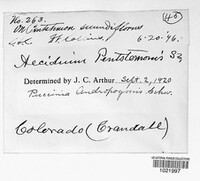 No. 263.
(46)
On Pentstemon secundiflorus
Ft Collins, 6-20-'96.
Aecidium Pentstemonis Sz
Determined by J. C. Arthur Sept. 2, 1920
Puccinia Andropogonis Schw.
Colorado (Crandall)
1021997